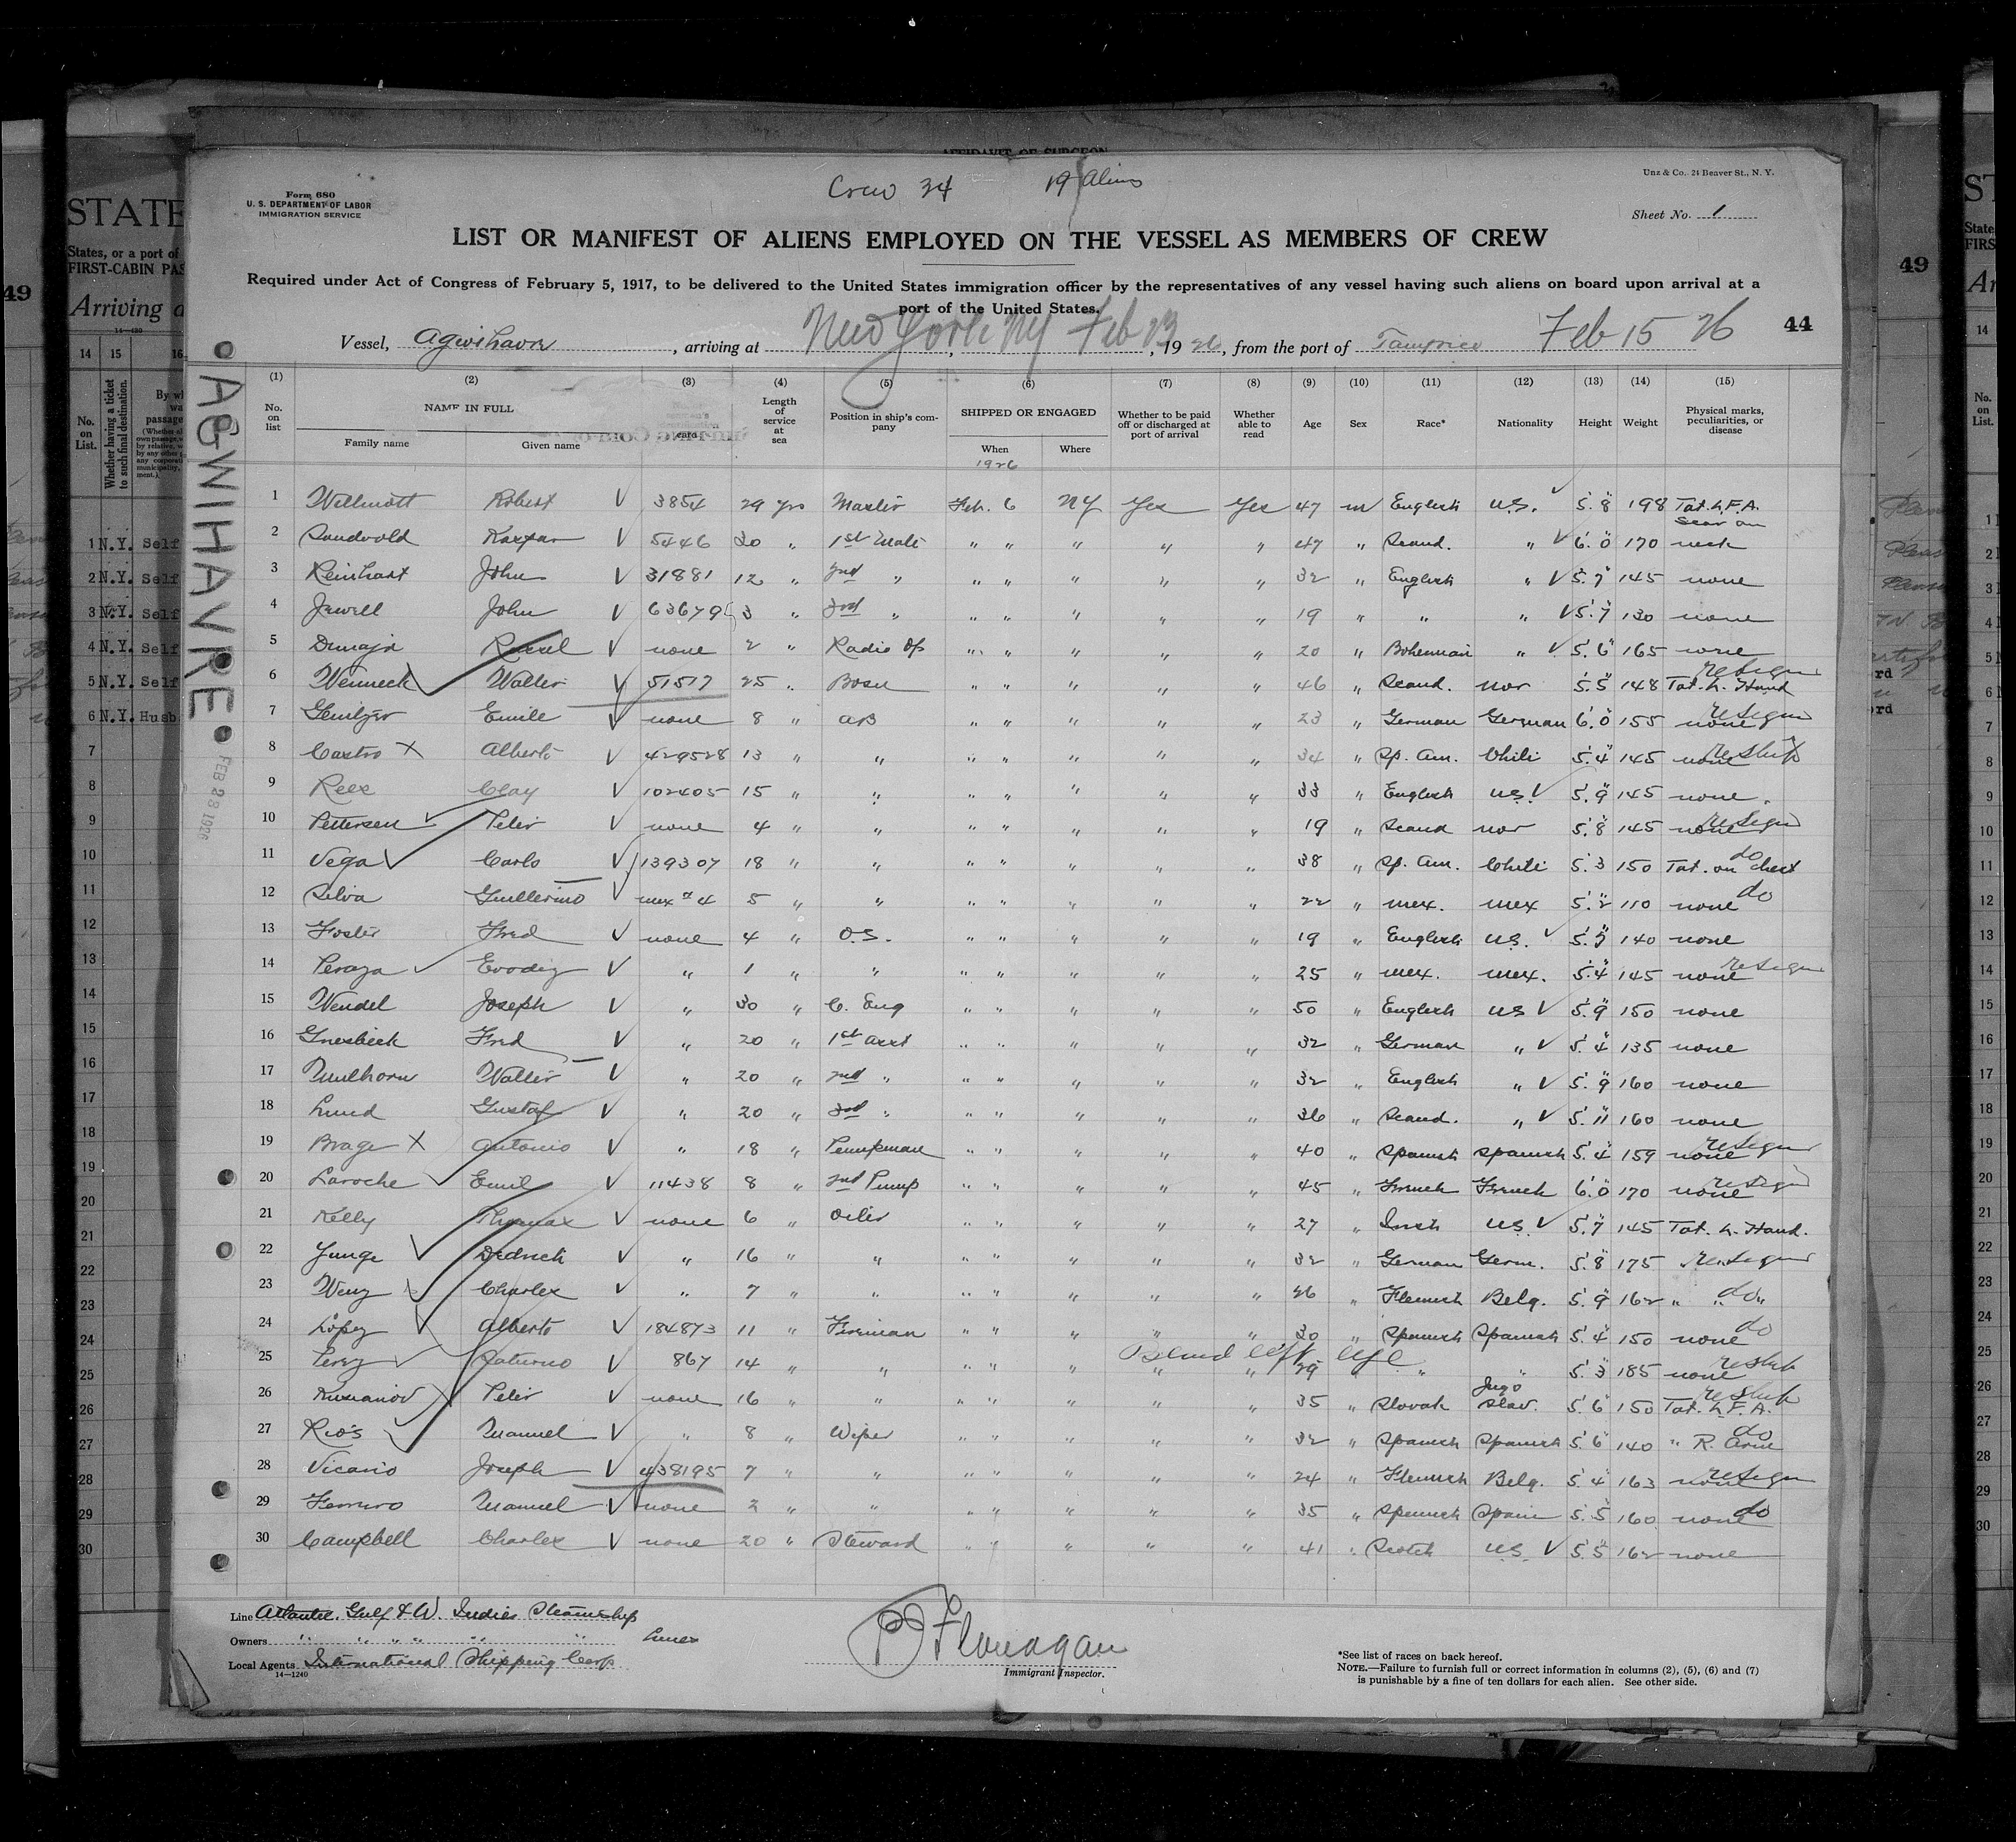 AFFIDAVIT OF SURGEON
Crew 34 19 Aliens
Form 680
U. S. DEPARTMENT OF LABOR
IMMIGRATION SERVICE
Unz & Co., 24 Beaver St., N. Y.
Sheet No. 1
LIST OR MANIFEST OF ALIENS EMPLOYED ON THE VESSEL AS MEMBERS OF CREW
Required under Act of Congress of February 5, 1917, to be delivered to the United States immigration officer by the representatives of any vessel having such aliens on board upon arrival at a
port of the United States.
Vessel, Agwihavre, arriving at New York NY Feb 23, 1926, from the port of Tampico Feb 15 26
44
AGWIHAVRE
FEB 23 1926
(1) (2) (3) (4) (5) (6) (7) (8) (9) (10) (11) (12) (13) (14) (15)
No. on list NAME IN FULL Family name Given name card Length of service at sea Position in ship's company SHIPPED OR ENGAGED When Where Whether to be paid off or discharged at port of arrival Whether able to read Age Sex Race* Nationality Height Weight Physical marks, peculiarities, or disease
1926
1 Willmott Robert V 3854 29 yrs Master Feb. 6 NY Yes Yes 47 m English U.S. 5'.8" 198 Tat. L.F.A.
2 Sandvold Kaspar V 5446 30 " 1st Mate " " " " " 47 " Scand. " V 6'.0" 170 Scar on neck
3 Reinhart John V 31881 12 " 2nd " " " " " " 32 " English " V 5'.7" 145 none
4 Jewell John V 63679 3 " 3rd " " " " " " 19 " " " V 5'.7" 130 none
5 Russel V none 2 " Radio Op " " " " " 20 " Bohemian " V 5'.6" 165 none
6 Wenneck Walter V 51517 25 " Bosn " " " " " 46 " Scand. Nor 5'.5" 148 Tat. L. Hand resign
7 Emile V none 8 " AB " " " " " 23 " German German 6'.0" 155 none resign
8 Castro X Alberto V 429528 13 " " " " " " " 34 " Sp. Am. Chili 5'.4" 145 none reship
9 Rees Clay V 102405 15 " " " " " " " 33 " English US V 5'.9" 145 none
10 Pettersen Peter V none 4 " " " " " " " 19 " Scand Nor 5'.8" 145 none resign
11 Vega Carlo V 139307 18 " " " " " " " 38 " Sp. Am. Chili 5'.3" 150 Tat. on chest do
12 Silva Guillermo V mex # 4 5 " " " " " " " 22 " mex. mex 5'.2" 110 none do
13 Foster Fred V none 4 " O.S. " " " " " 19 " English U.S. 5'.7" 140 none
14 Peraza V " 1 " " " " " " " 25 " mex. mex. 5'.4" 145 none resign
15 Wendel Joseph V " 30 " C. Eng " " " " " 50 " English US V 5'.9" 150 none
16 Fred V " 20 " 1st Asst " " " " " 32 " German " V 5'.4" 135 none
17 Walter V " 20 " 2nd " " " " " " 32 " English " V 5'.9" 160 none
18 Lund Gustaf V " 20 " 3rd " " " " " " 36 " Scand. " V 5'.11" 160 none
19 Brage X Antonio V " 18 " Pumpman " " " " " 40 " Spanish Spanish 5'.4" 159 none resign
20 Laroche Emil V 11438 8 " 2nd Pump " " " " " 45 " French French 6'.0" 170 none resign
21 Kelly Thomas V none 6 " Oiler " " " " " 27 " Irish US V 5'.7" 145 Tat. L. Hand.
22 Junge Dedrich V " 16 " " " " " " " 32 " German Germ. 5'.8" 175 resign
23 Weny Charles V " 7 " " " " " " " 26 " Flemish Belg. 5'.9" 162 " " do
24 Lopez Alberto V 184873 11 " Fireman " " " " " 30 " Spanish Spanish 5'.4" 150 none do
Blind left eye
25 Perez Saturno V 867 14 " " " " " " " 29 " " " 5'.3" 185 none reship
26 Peter V none 16 " " " " " " " 35 " Slovak Jugo Slav. 5'.6" 150 Tat. L.F.A. reship
27 Rios Manuel V " 8 " Wiper " " " " " 32 " Spanish Spanish 5'.6" 140 " R. Arm do
28 Vicario Joseph V 438195 7 " " " " " " " 24 " Flemish Belg. 5'.4" 163 none resign
29 Ferreiro Manuel V none 2 " " " " " " " 35 " Spanish Spain 5'.5" 160 none do
30 Campbell Charles V none 20 " Steward " " " " " 41 " Scotch US V 5'.5" 162 none
Line Atlantic, Gulf & W. Indies Steamship
Owners " " " " " " Lines
Local Agents International Shipping Corp
14—1240
Flanagan
Immigrant Inspector.
*See list of races on back hereof.
NOTE.—Failure to furnish full or correct information in columns (2), (5), (6) and (7)
is punishable by a fine of ten dollars for each alien. See other side.
STATE
States, or a port of
FIRST-CABIN PAS
Arriving a
49
14 15 16
No. on List.
Whether having a ticket to such final destination.
1 N.Y. Self
2 N.Y. Self
3 N.Y. Self
4 N.Y. Self
5 N.Y. Self
6 N.Y. Husb
49